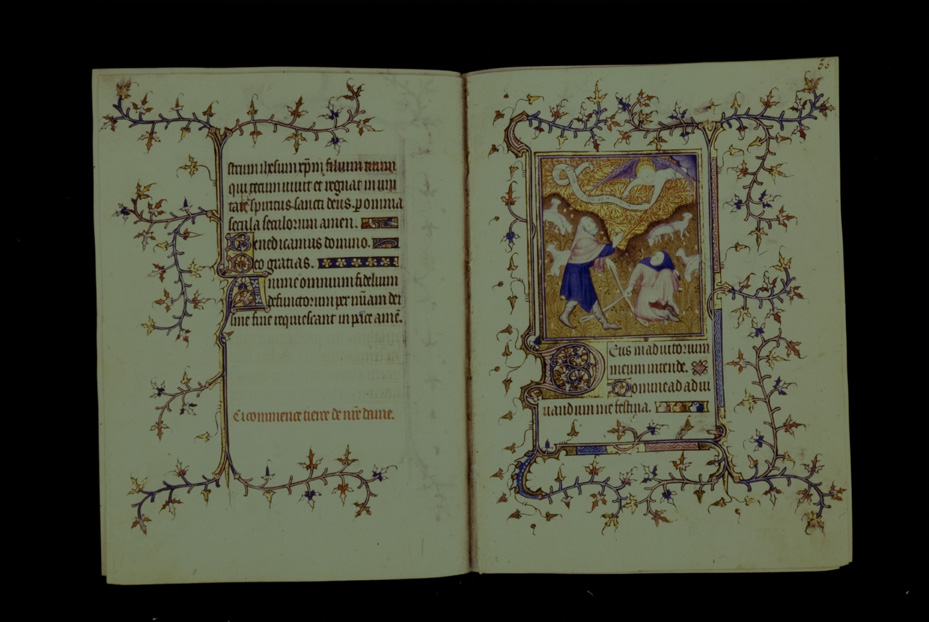 strum ihesum xpm filium tuum
qui tecum uiuit et regnat in uni
tate spiritus sancti deus. p omnia
secula seculorum amen.
Benedicamus domino.
Deo gratias.
Anime omnium fidelium
defunctorum per miam dei
sine fine requiescant in pace ame.
Ci commence tierce de nre dame.
Deus in adiutorium
meum intende.
Domine ad adiu
uandum me festina.